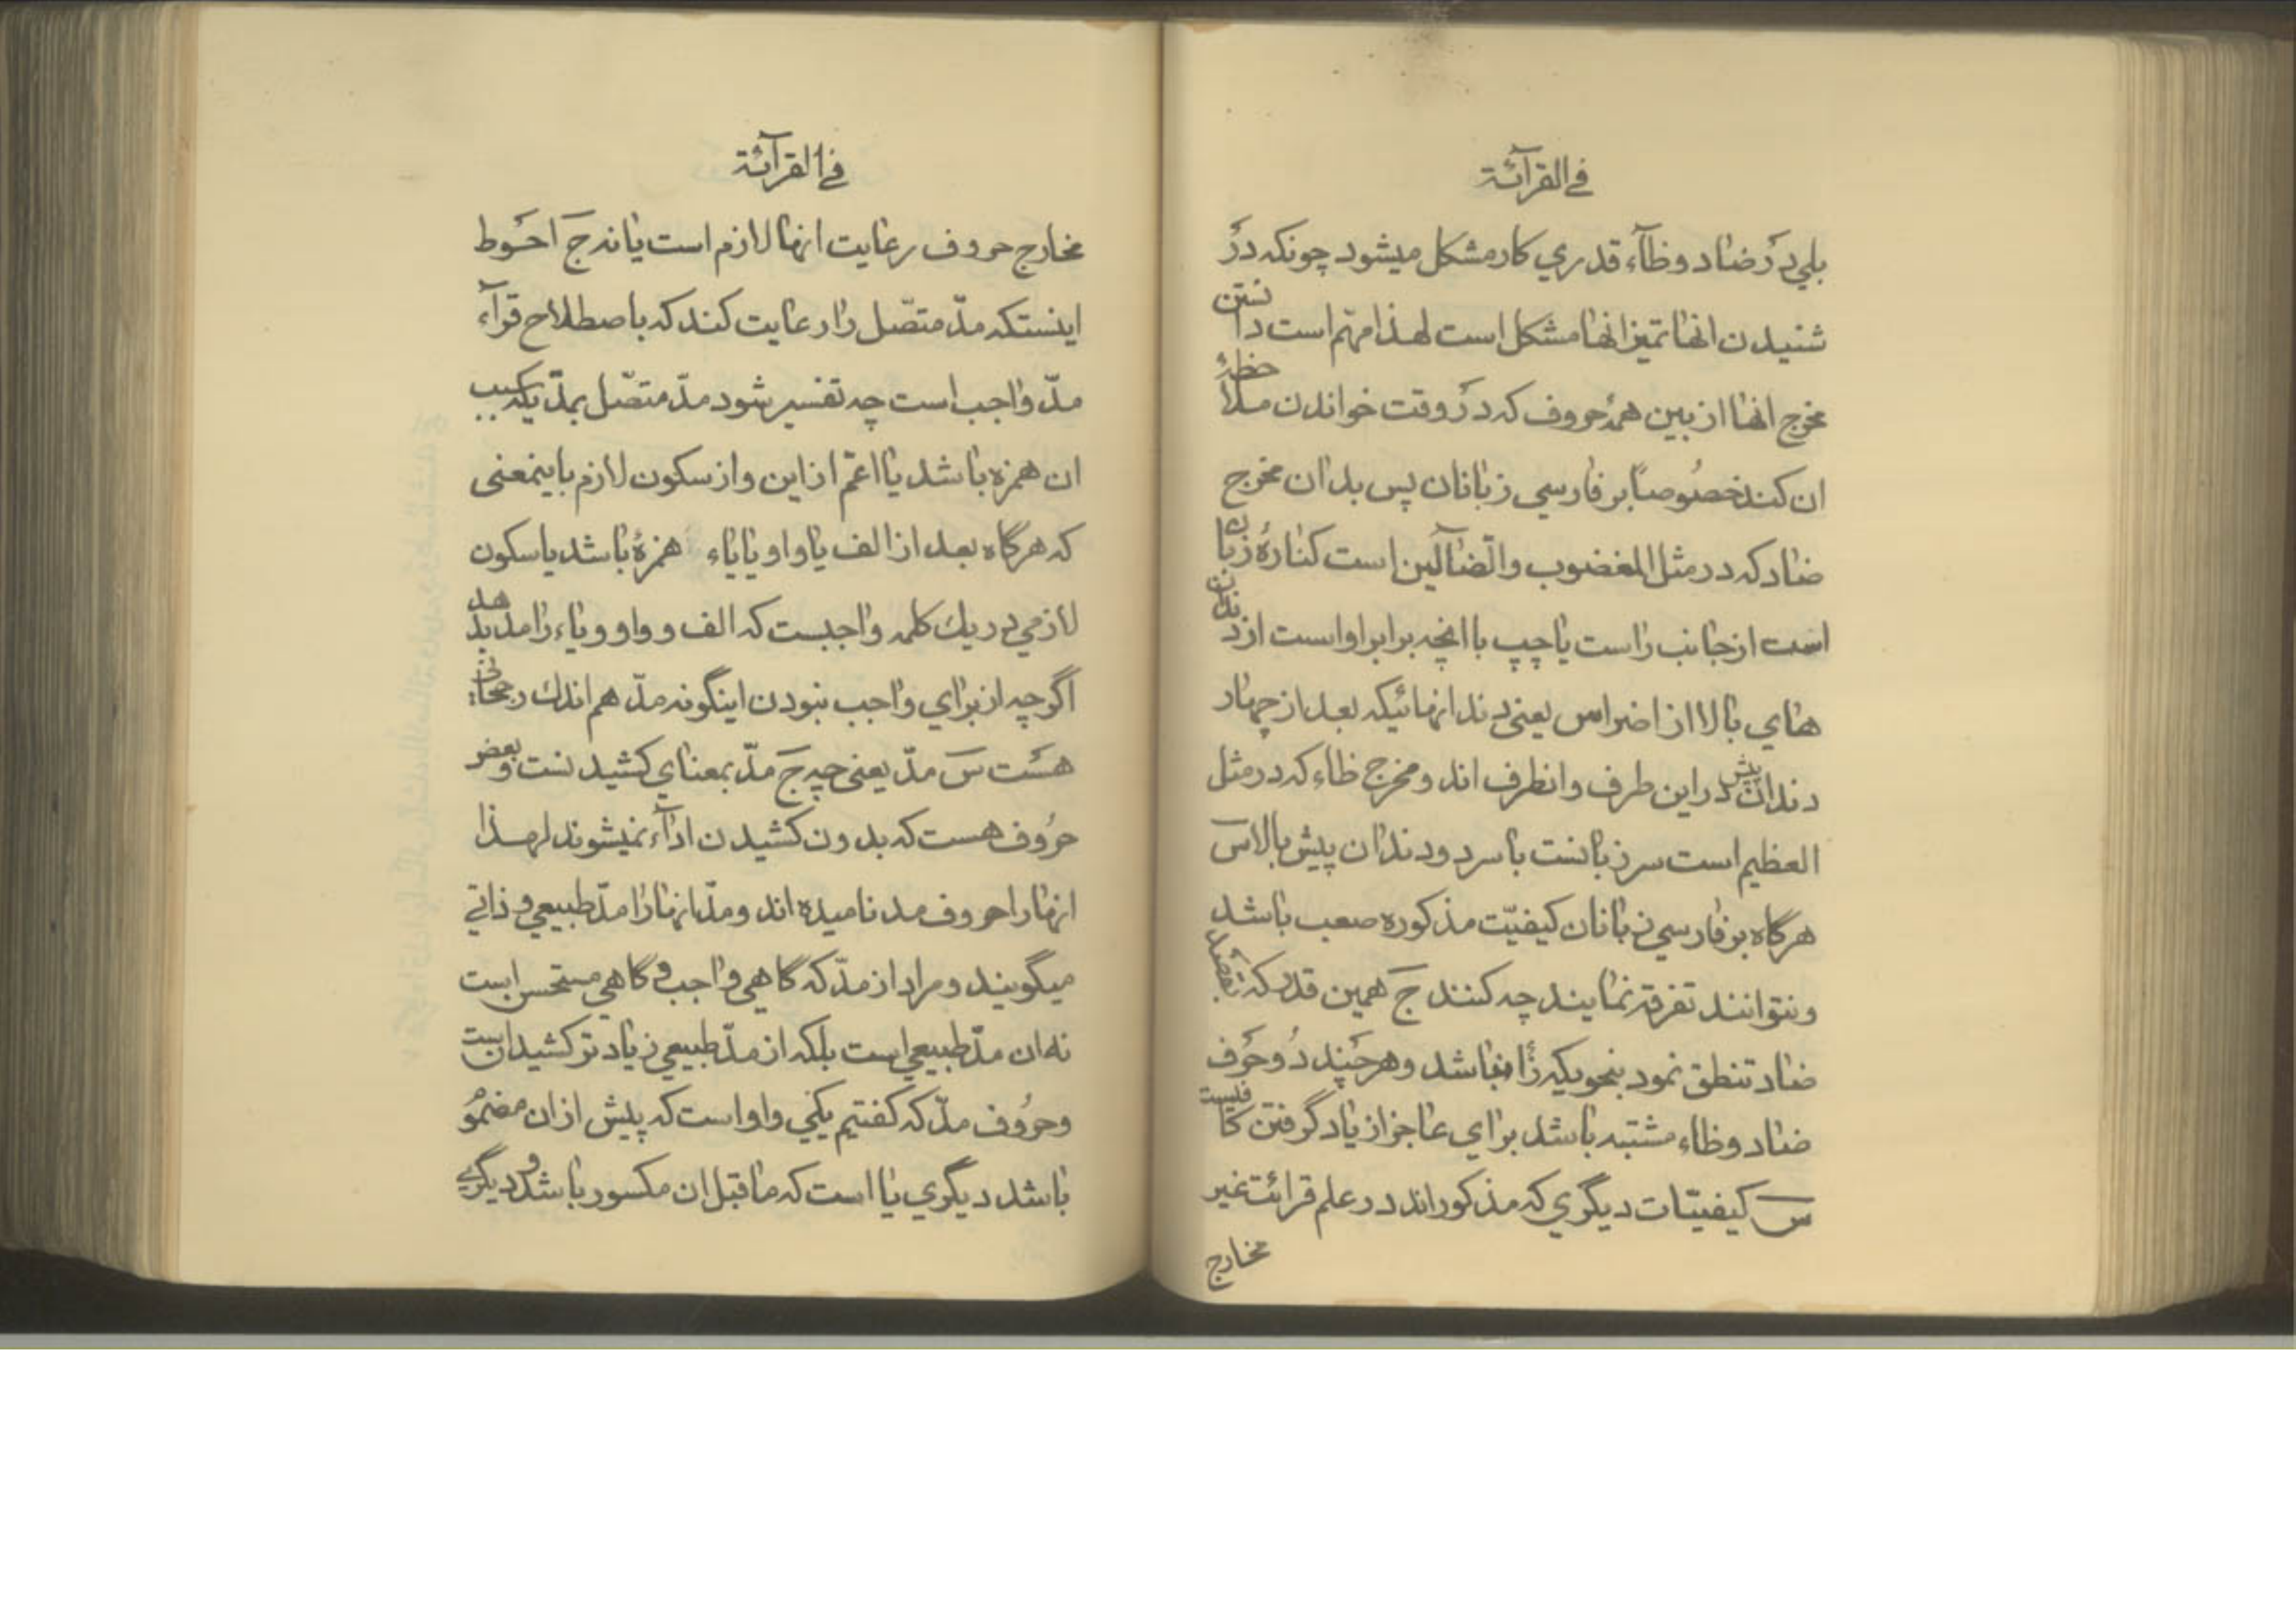 في القرآئة
بلي در ضاد وظآء قدري كار مشكل ميشود چونكه در
شنيدن انها تميز انها مشكل است لهذا مهم است دانستن
مخرج انها از بين همۀ حروف كه در وقت خواندن ملاحظۀ
ان كند خصوصاً بر فارسي زبانان پس بدان مخرج
ضاد كه در مثل المغضوب والضآلّين است كنارۀ زبان
است از جانب راست يا چپ با انچه برابر اواست از دندان
هاي بالا از اضراس يعني دندانهائيكه بعد از چهار
دندان پيش در اين طرف وانطرف اند ومخرج ظاء كه در مثل
العظيم است سر زبانست با سر دو دندان پيش بالا س
هرگاه بر فارسي زبانان كيفيّت مذكوره صعب باشد
ونتوانند تفرقه نمايند چه كنند ج همين قدر كه بقصد
ضاد تنطق نمود بنحويكه زا نباشد وهرچند دو حرف
ضاد وظاء مشتبه باشد براي عاجز از ياد گرفتن كافيست
س كيفيّات ديگري كه مذكوراند در علم قرائت غير
مخارج
في القرآئة
مخارج حروف رعايت انها لازم است يا نه ج احوط
اينستكه مدّ متصّل را رعايت كند كه باصطلاح قرآء
مدّ واجب است چه تفسير شود مدّ متصّل بمدّيكه سبب
ان همزه باشد يا اعمّ از اين واز سكون لازم باينمعنى
كه هرگاه بعد از الف يا واو يا ياء همزۀ باشد يا سكون
لازمي در يك كلمه واجبست كه الف و واو و ياء را مد بدهد
اگرچه از براي واجب نبودن اينگونه مدّ هم اندك رجحاني
هست س مدّ يعني چه ج مدّ بمعناي كشيدنست وبعض
حروف هست كه بدون كشيدن ادآء نميشوند لهذا
انها را حروف مد ناميده اند ومدّ انها را مدّ طبيعي و ذاتي
ميگويند ومراد از مدّ كه گاهي واجب و گاهي مستحسن است
نه ان مدّ طبيعي است بلكه از مدّ طبيعي زيادتر كشيدانست
وحروف مدّ كه گفتيم يكي واو است كه پيش از ان مضموم
باشد ديگري يا است كه ماقبل ان مكسور باشد و ديگري